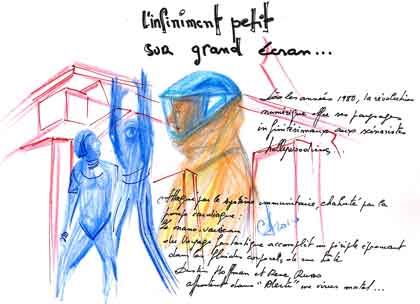 l'infiniment petit
sur grand écran...
Dès les années 1980, la révolution
numérique offre ses paysages
infinitésimaux aux scénaristes
hollywoodiens.
Attaqué par le système immunitaire, chahuté par la
pompe cardiaque :
Le nano-vaisseau
du Voyage fantastique accomplit un périple éprouvant
dans les fluides corporels, de un
Dustin Hoffman et Rene Russo
affrontent dans "Alerte" un virus mortel...